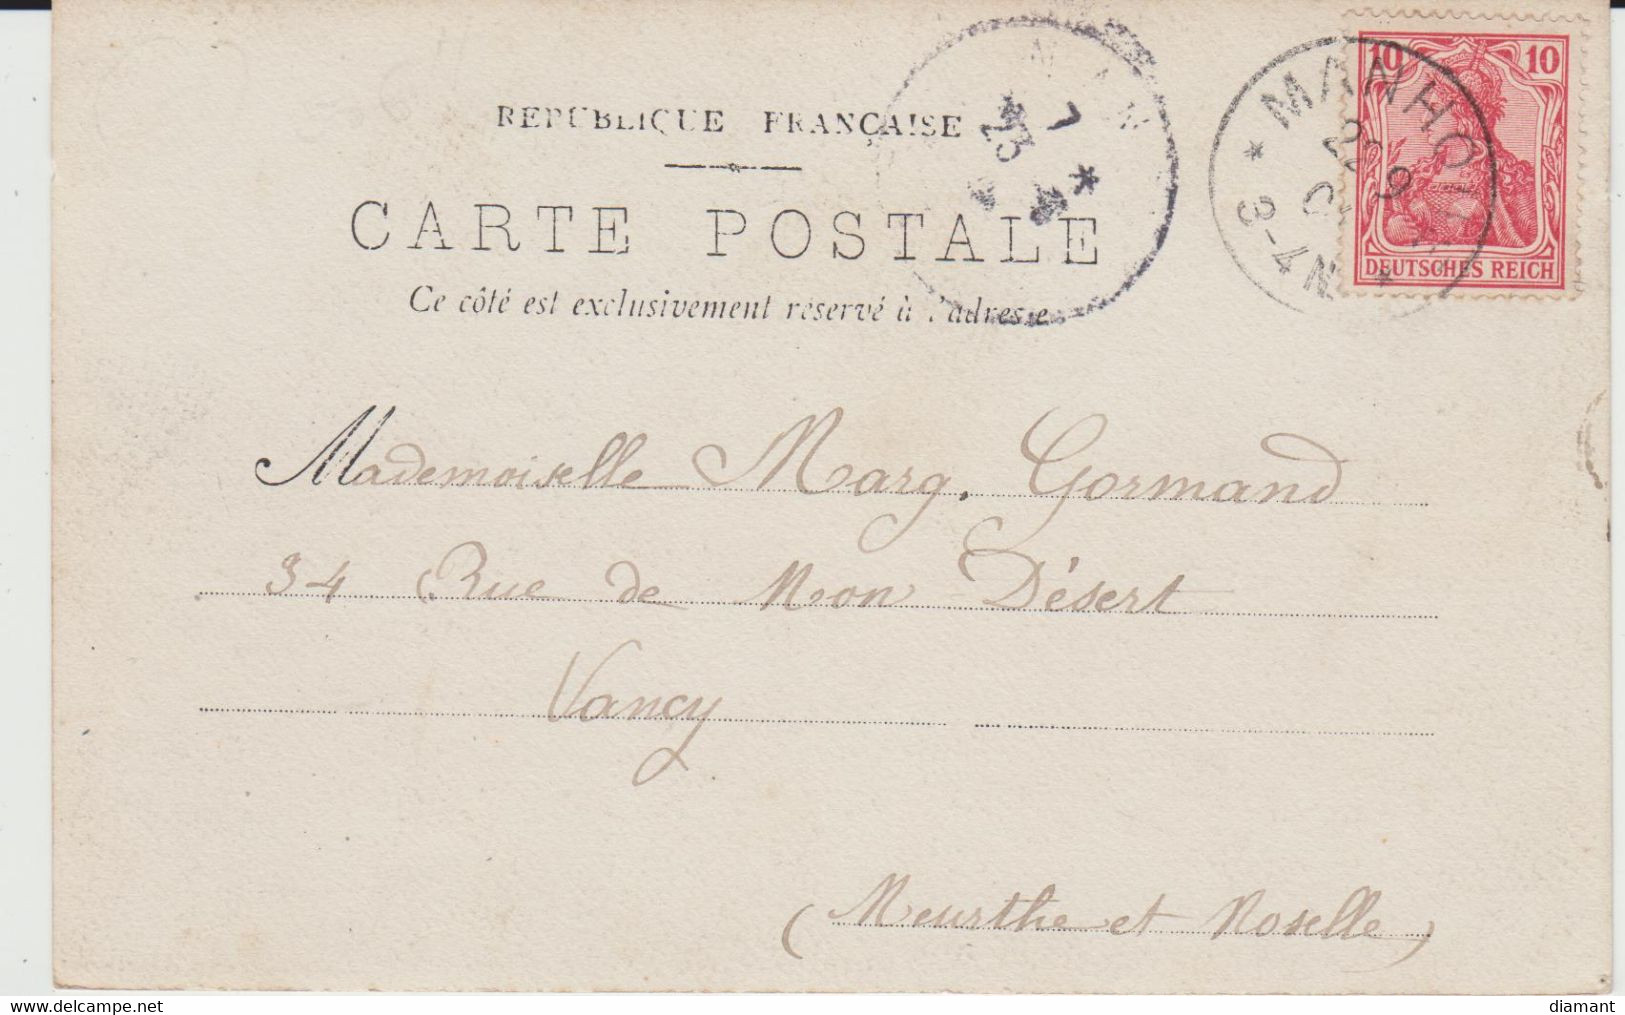 REPUBLIQUE FRANÇAISE
CARTE POSTALE
Ce côté est exclusivement réservé à l'adresse
10 10
DEUTSCHES REICH
MANHO
22 9
* 3-4N *
7
23
Mademoiselle Marg. Gormand
34 Rue de Mon Désert
Nancy
(Meurthe et Moselle)
diamant
www.delcampe.net